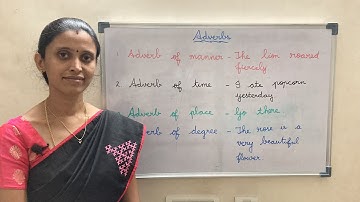 Adverbs
1. Adverb of manner - The lion roared
fiercely.
2. Adverb of time - I ate popcorn
yesterday.
Adverb of place - Go there.
verb of degree - The rose is a
very beautiful
flower.